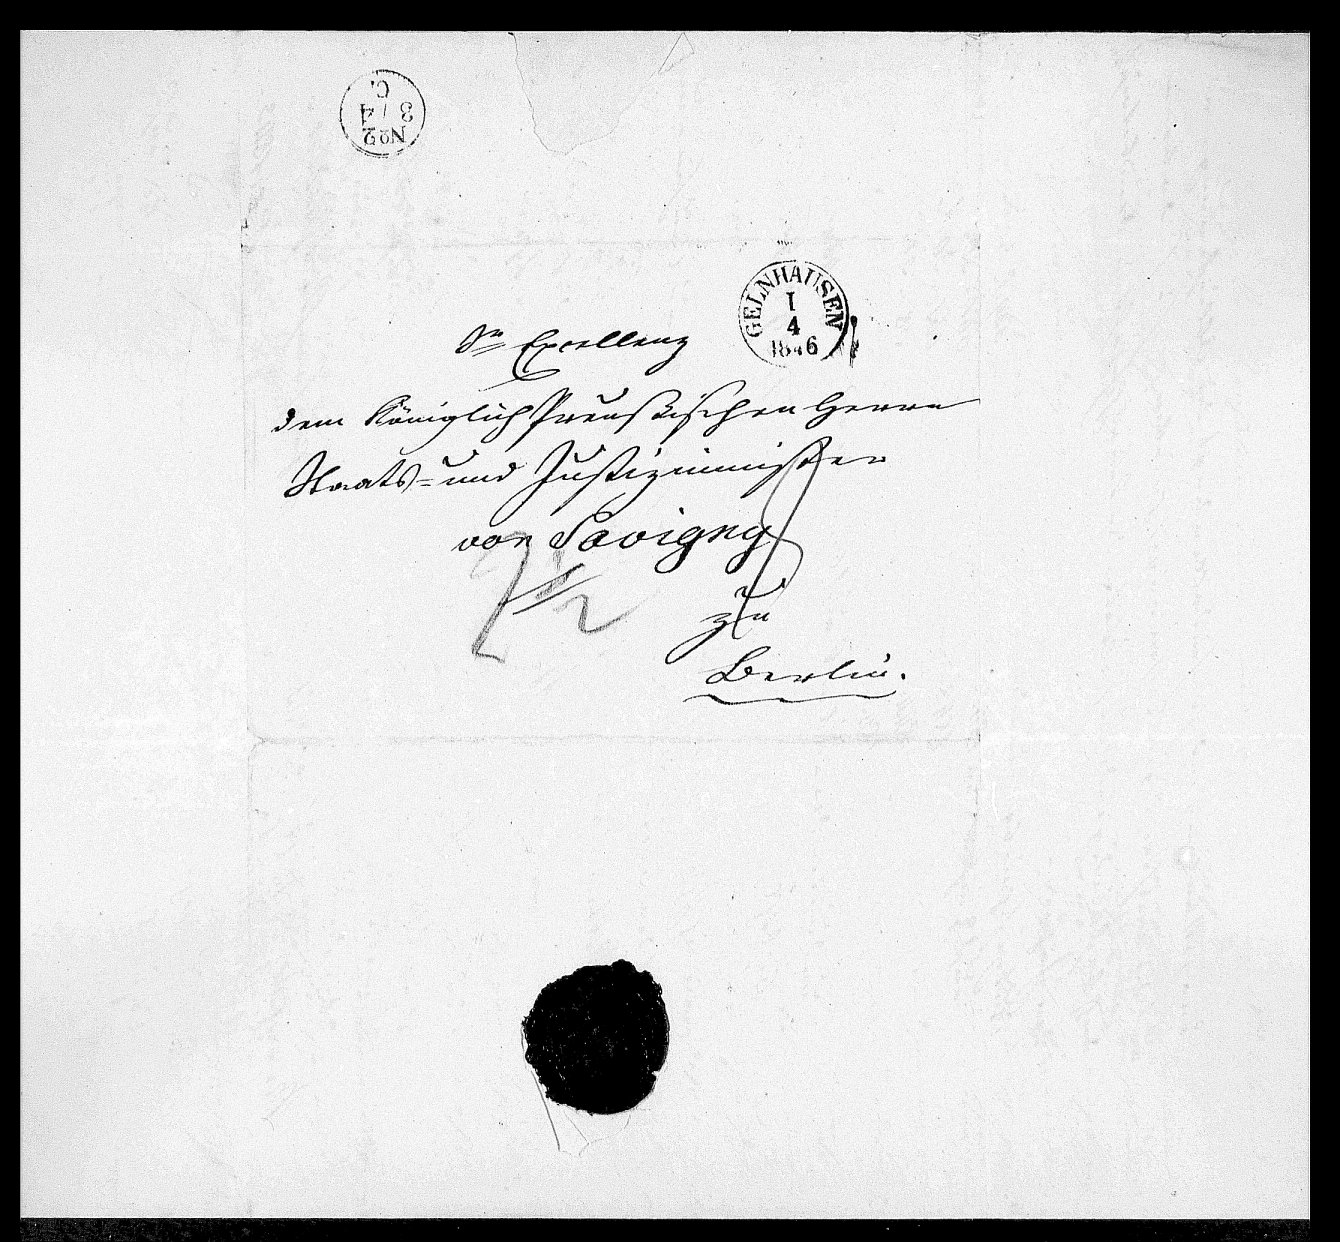 C.
3/4
No 2
GELNHAUSEN
1
4
1846
Sr Excellenz
dem Königlich Preußischen Herrn
Staats- und Justizminister
von Savigny
zu
Berlin.